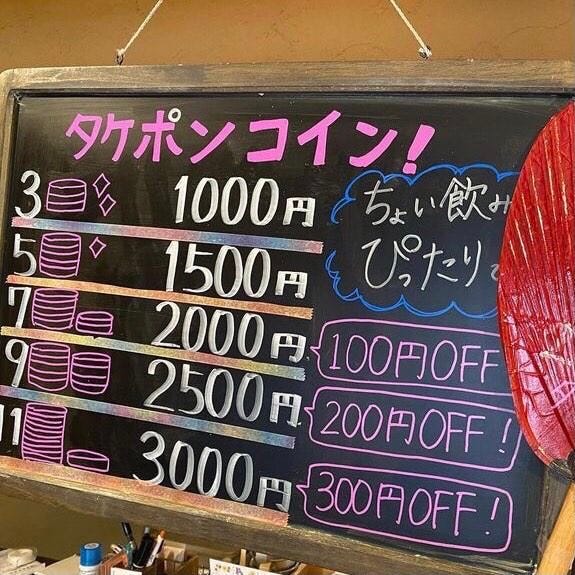 タケポンコイン!
3 1000円
5 1500円
7 2000円
9 2500円
11 3000円
ちょい飲み
ぴったりで
100円OFF
200円OFF!
300円OFF!